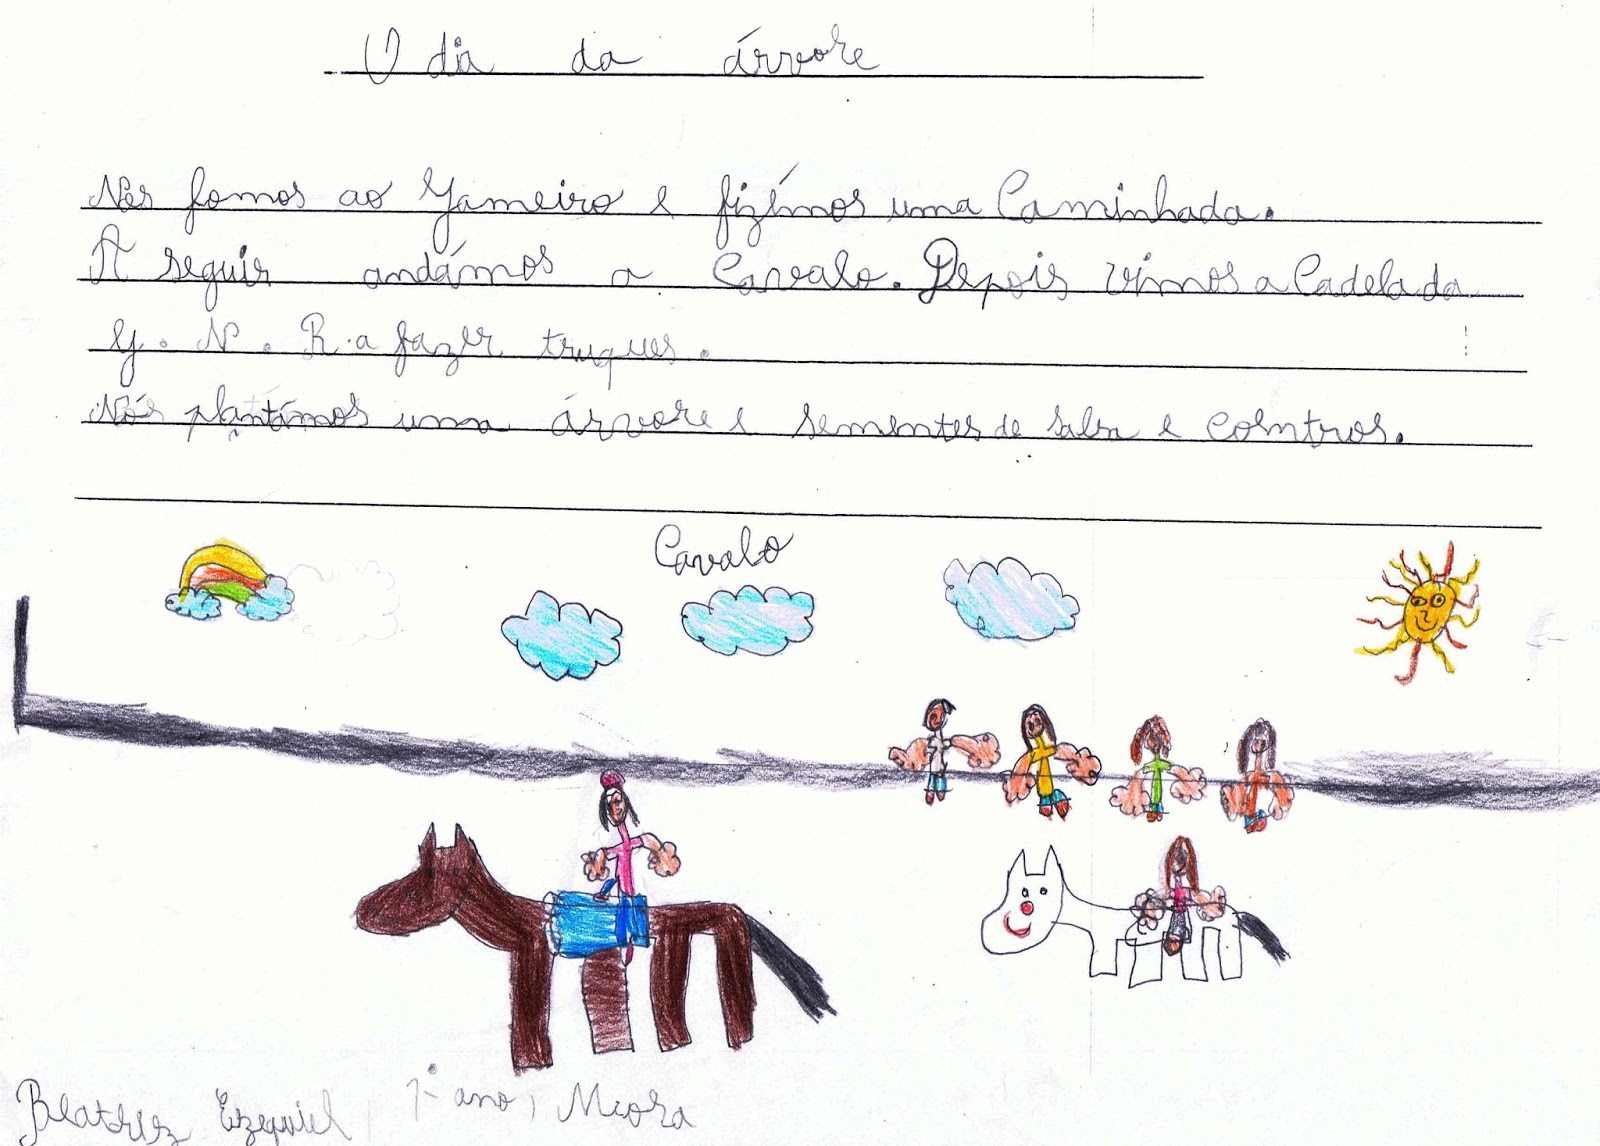 O dia da árvore
Nós fomos ao Gameiro e fizémos uma Caminhada.
A seguir andámos a Cavalo. Depois vimos a Cadela da
G. N. R. a fazer truques.
Nós plantámos uma árvore e sementes de salsa e coentros.
Cavalo
Beatriz Ezequiel 1º ano, Mora